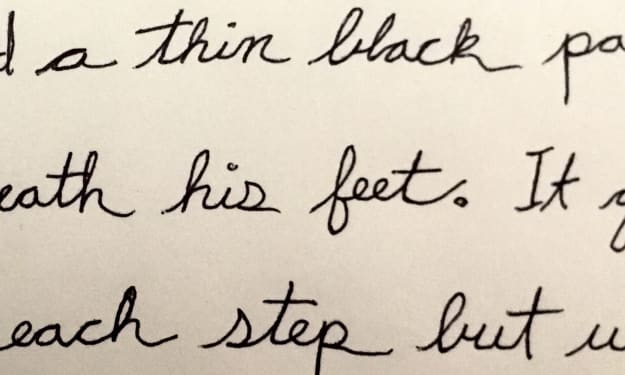 d a thin black pa
eath his feet. It g
each step but u